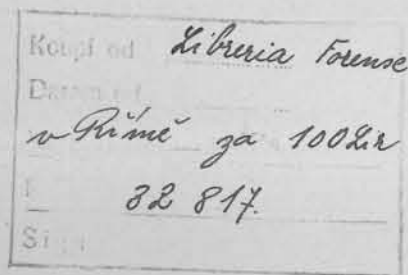 Koupí od Libreria Forense
Darem od
v Římě za 100 Lir
32 817.
Sig